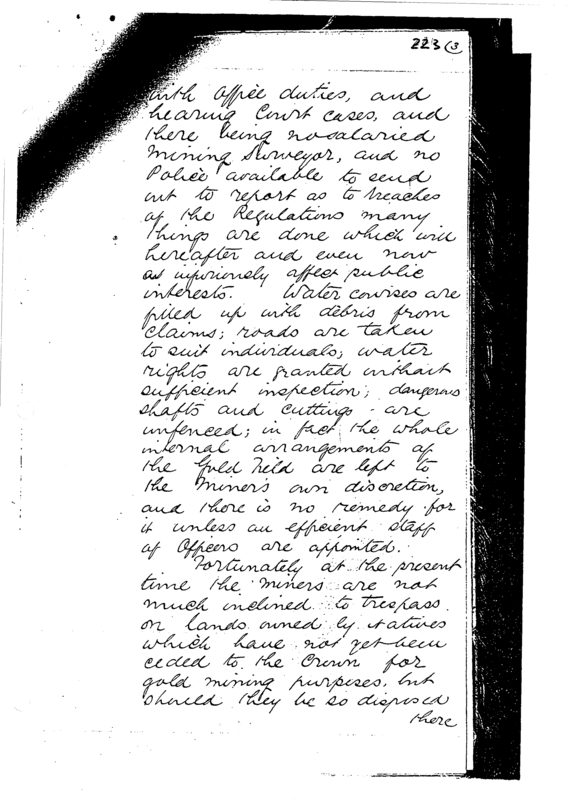 223 (3
with Office duties, and
hearing Court cases, and
there being no salaried
Mining Surveyor, and no
Police available to send
out to report as to breaches
of the Regulations many
things are done which will
hereafter and even now
as injuriously affect public
interests. Water courses are
filled up with debris from
Claims; roads are taken
to suit individuals, water
rights are granted without
sufficient inspection; dangerous
shafts and cuttings - are
unfenced; in fact the whole
internal arrangements of
the Gold Field are left to
the Miners own discretion,
and there is no remedy for
it unless an efficient staff
of Officers are appointed.
Fortunately at the present
time the Miners are not
much inclined to trespass
on lands owned by Natives
which have not yet been
ceded to the Crown for
gold mining purposes, but
should they be so disposed
there